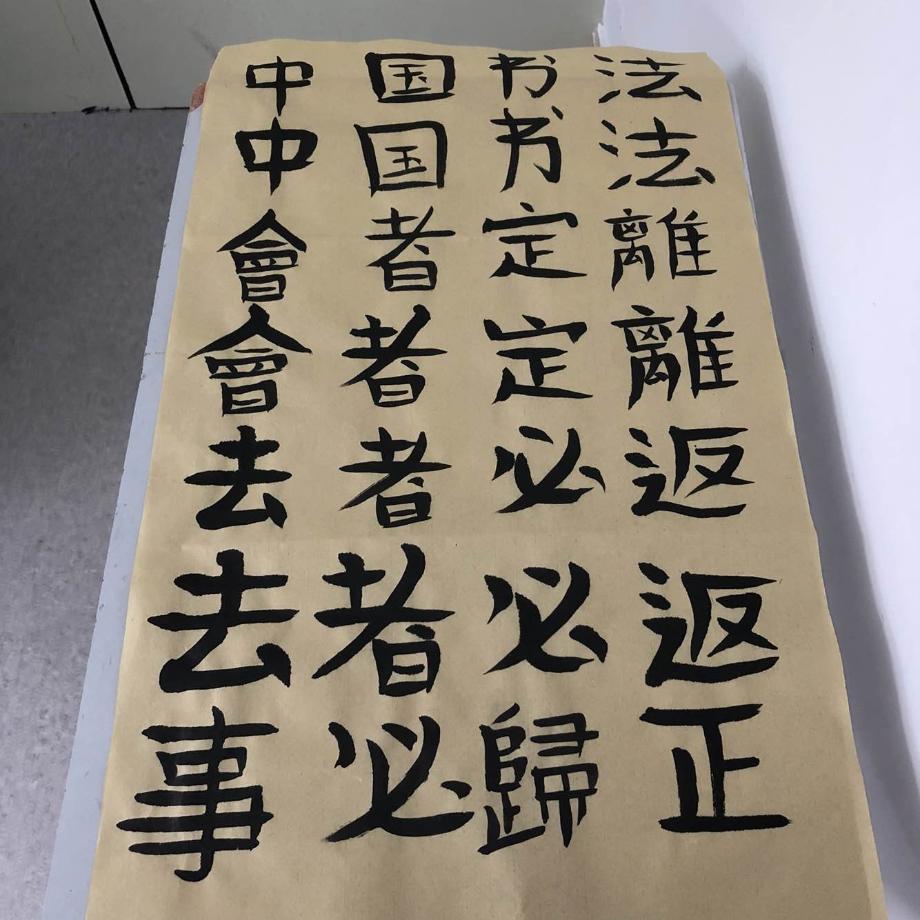 中国书法
中国书法
會者定離
會者定離
去者必返
去者必返
事必歸正